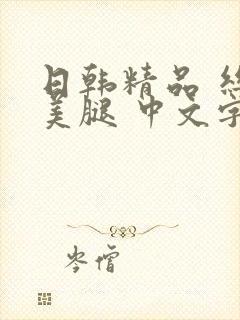 日韩精品
美腿 中文字
岑僧